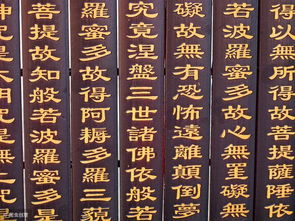 得以無所得故菩提薩埵依
若波羅蜜多故心無罣礙
礙故無有恐怖遠離顛倒夢
究竟涅槃三世諸佛依般若
羅蜜多故得阿耨多羅三藐
菩提故知般若波羅蜜是